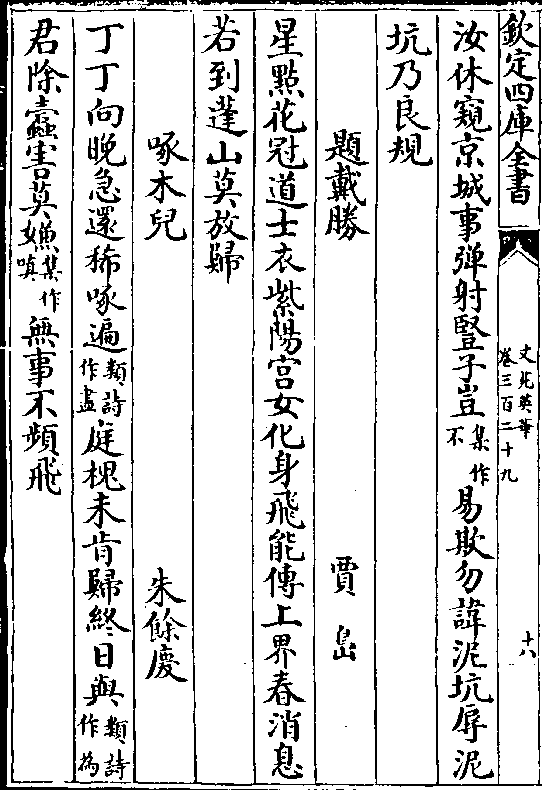 欽定四庫全書 文苑英華 卷三百二十九 十八
汝休窺京城事弹射豎子豈集作不易欺勿諱泥坑辱泥
坑乃良規
題戴勝 賈島
星點花冠道士衣紫陽宫女化身飛能傳上界春消息
若到蓬山莫放歸
啄木兒 朱餘慶
丁丁向晚急還稀啄遍類詩作盡庭槐未肯歸終日與類詩作為
君除蠧害莫嫌集作嗔無事不頻飛